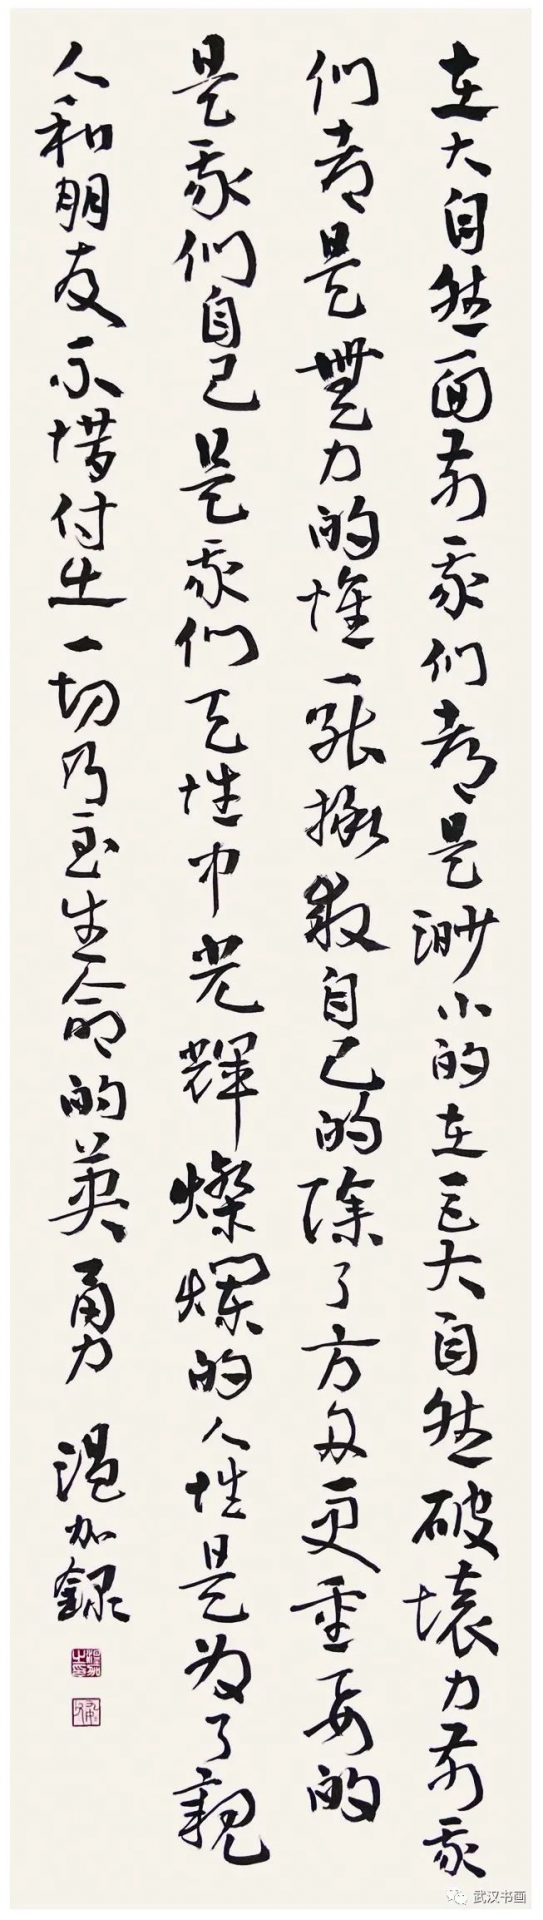 在大自然面前我们都是渺小的在大自然破壞力前我
们都是無力的惟一能拯救自己的除了方舟更重要的
是我们自己是我们天性中光輝燦爛的人性是为了親
人和朋友不惜付出一切乃至生命的英勇
温加錄
武汉书画